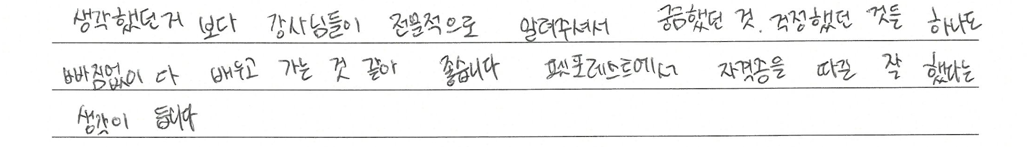 생각했던거 보다 강사님들이 전문적으로 알려주셔서 궁금했던 것. 걱정했던 것들 하나도
빠짐없이 다 배우고 가는 것 같아 좋습니다 펫포레스트에서 자격증을 따길 잘 했다는
생각이 듭니다